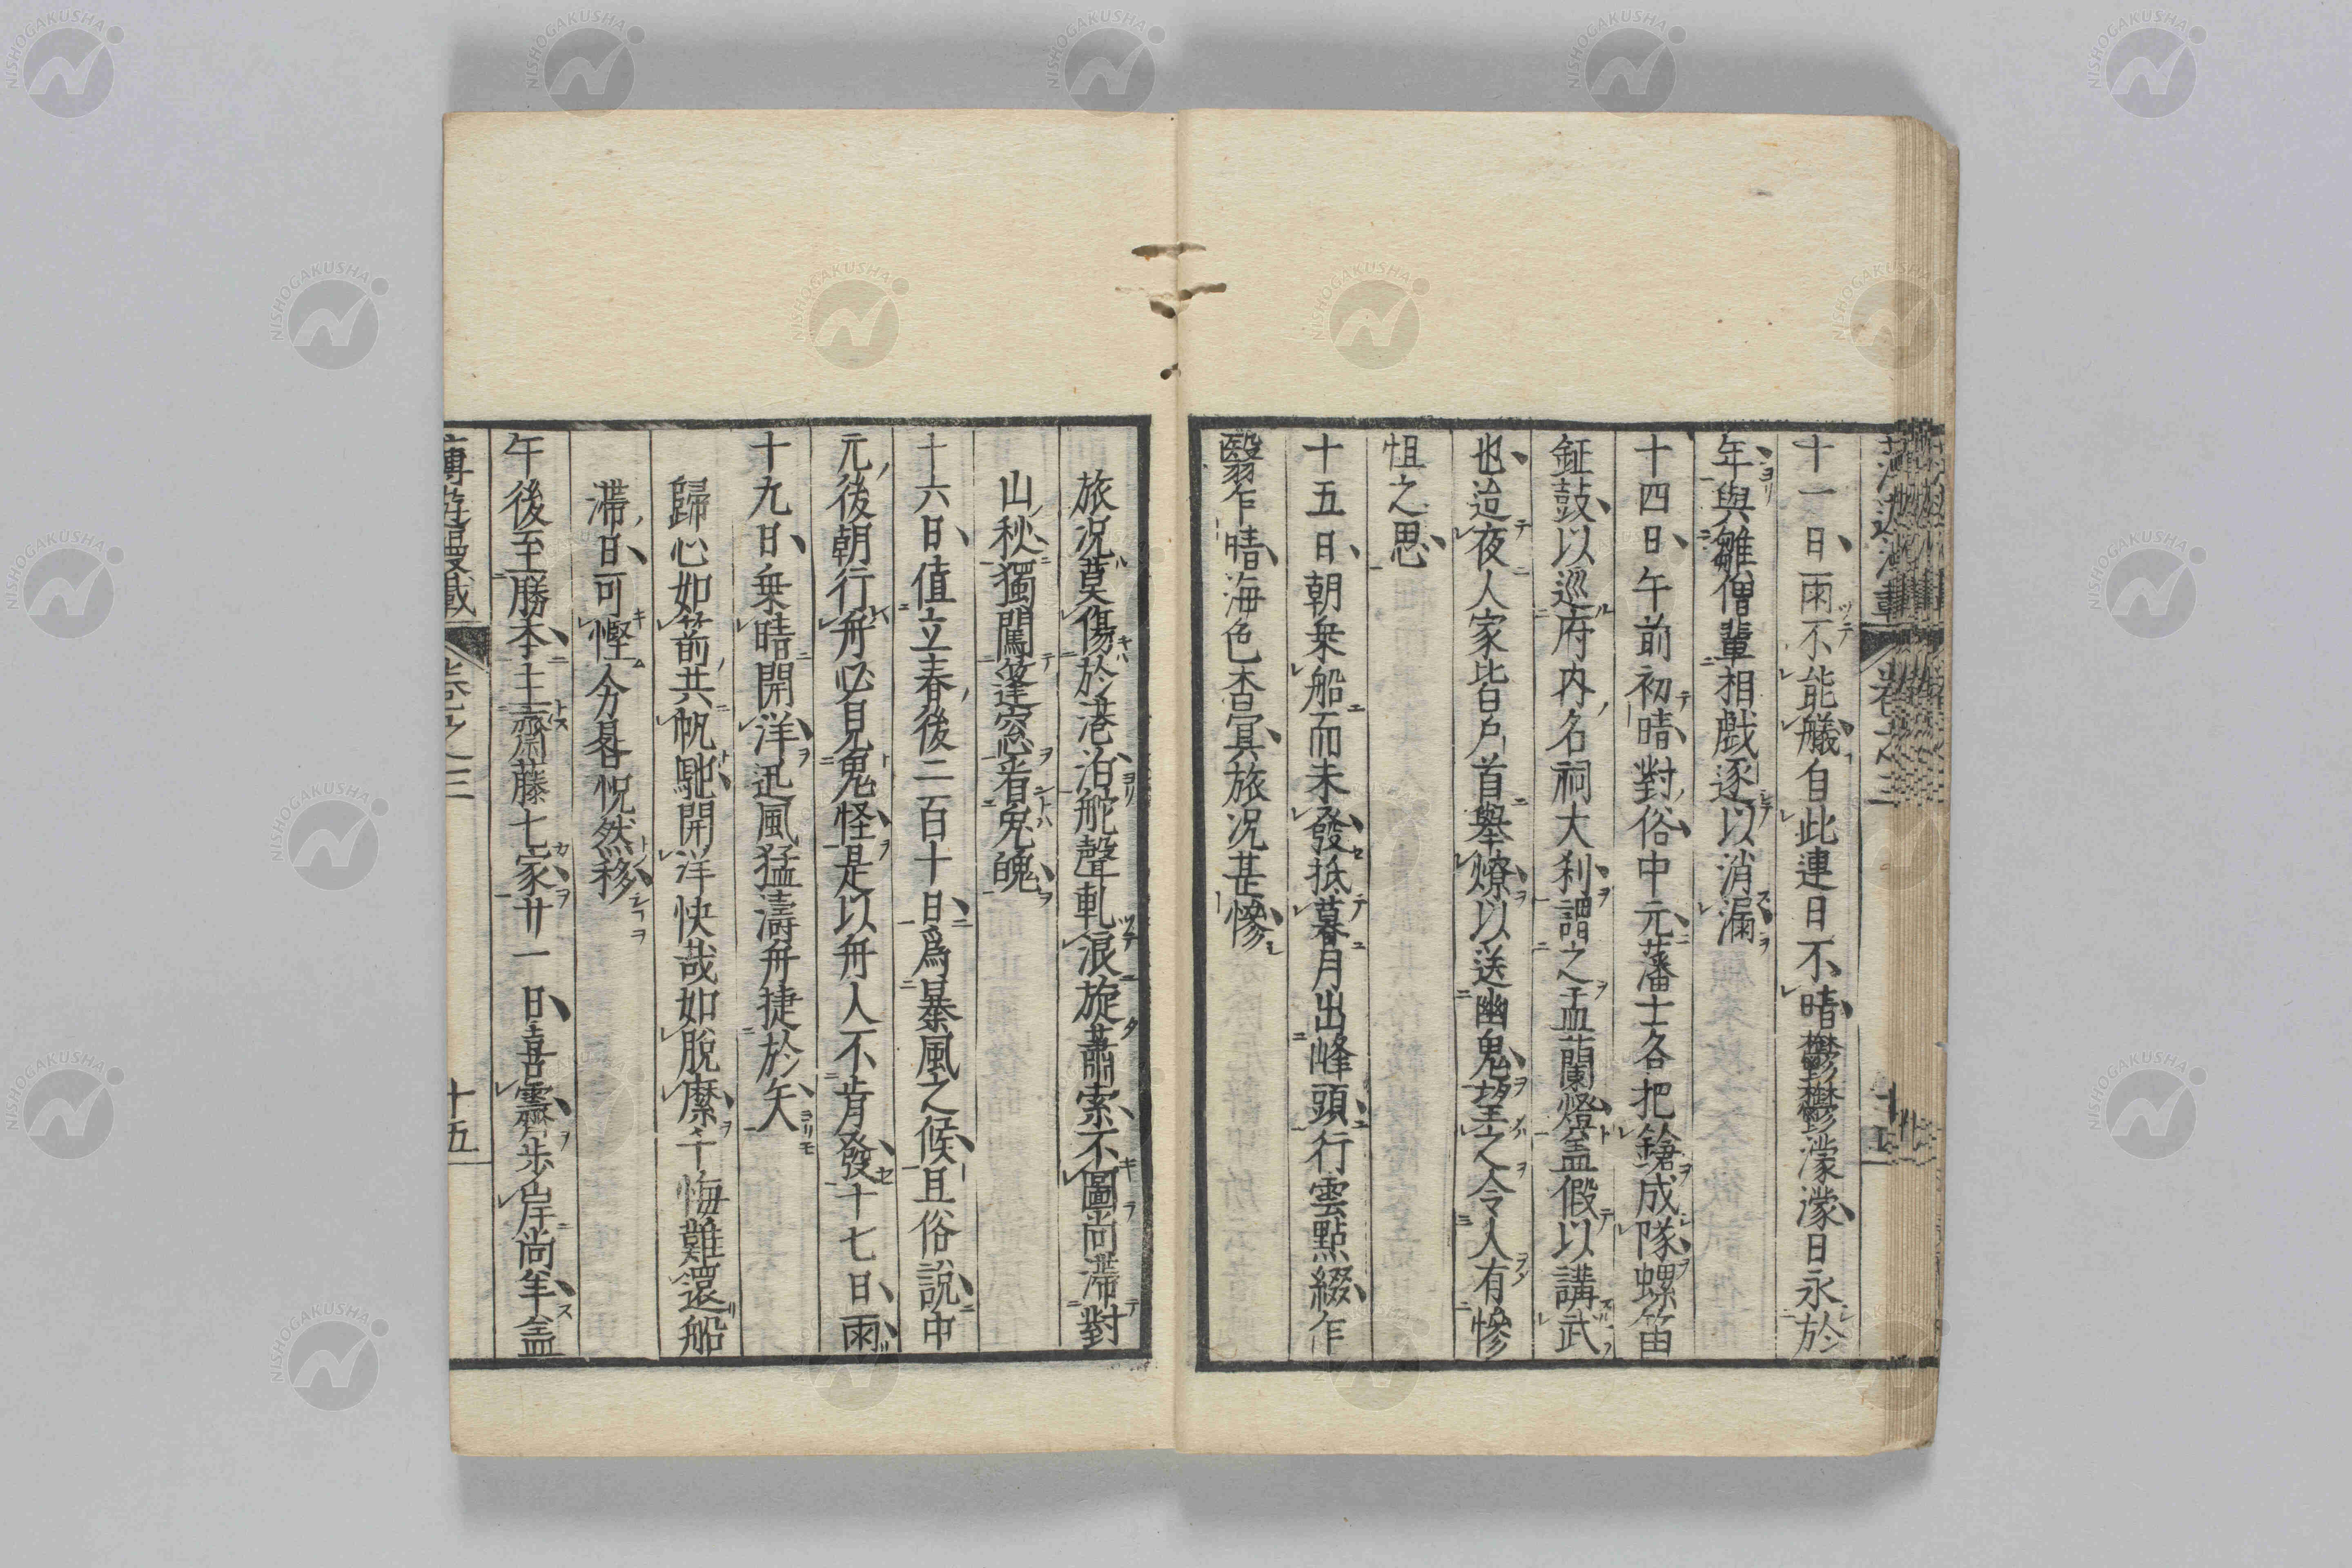 十一日雨不能艤自此連日不晴鬱鬱濛濛日永於
年與雛僧輩相戲逐以消漏
十四日午前初晴對俗中元藩士各把鎗成隊螺笛
鉦鼓以巡府内名祠大刹謂之盂蘭燈盖假以講武
也迨夜人家皆戶首舉燎以送幽鬼望之令人有慘
怚之思
十五日朝椉船而未發抵暮月出峰頭行雲點綴乍
翳乍晴海色杳冥旅况甚慘
旅况莫傷於港泊舵聲軋浪旋蕭索不圖尚滯對
山秋獨闖篷窓看兔魄
十六日值立春後二百十日爲暴風之候且俗說中
元後朝行舟必見鬼怪是以舟人不肯發十七日雨
十九日椉晴開洋迅風猛濤舟捷於矢
歸心如箭共帆馳開洋快哉如脫縻千悔難還船
滯日可慳分晷怳然移
午後至勝本主齋藤七家廿一日喜霽步岸尚年盖
漫載
卷之三
十五
卷之三
NISHOGAKUSHA